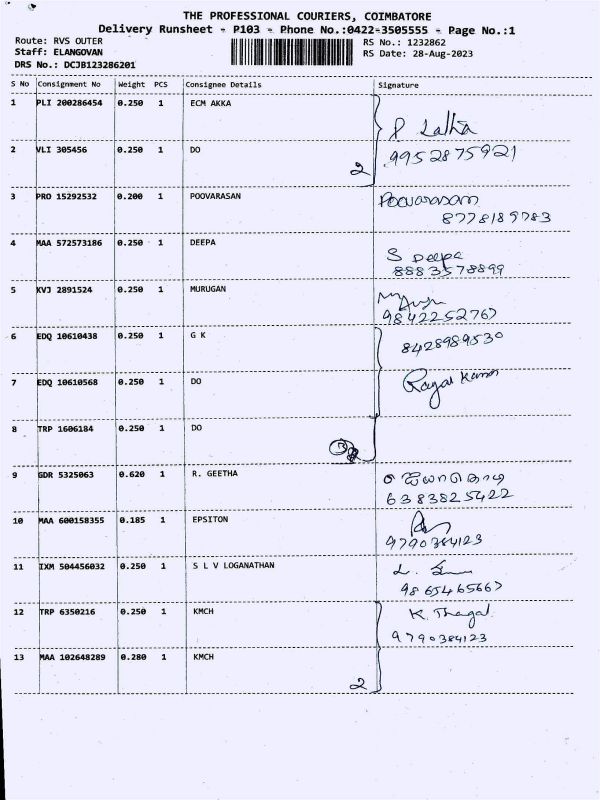 THE PROFESSIONAL COURIERS, COIMBATORE
Delivery Runsheet - P103 - Phone No.:0422-3505555 - Page No.:1
Route: RVS OUTER RS No.: 1232862
Staff: ELANGOVAN RS Date: 28-Aug-2023
DRS No.: DCJB123286201
S No Consignment No Weight PCS Consignee Details Signature
1 PLI 200286454 0.250 1 ECM AKKA
P Latha
2 VLI 305456 0.250 1 DO 9952875921
2
3 PRO 15292532 0.200 1 POOVARASAN Poovarasan
8778189783
4 MAA 572573186 0.250 1 DEEPA
S Deepa
8883578899
5 KVJ 2891524 0.250 1 MURUGAN
9842252767
6 EDQ 10610438 0.250 1 G K 8428989530
7 EDQ 10610568 0.250 1 DO
8 TRP 1606184 0.250 1 DO
9 GDR 5325063 0.620 1 R. GEETHA
6383825422
10 MAA 600158355 0.185 1 EPSITON
9790384123
11 IXM 504456032 0.250 1 S L V LOGANATHAN
9865465667
12 TRP 6350216 0.250 1 KMCH K. Thagal
9790384123
13 MAA 102648289 0.280 1 KMCH
2